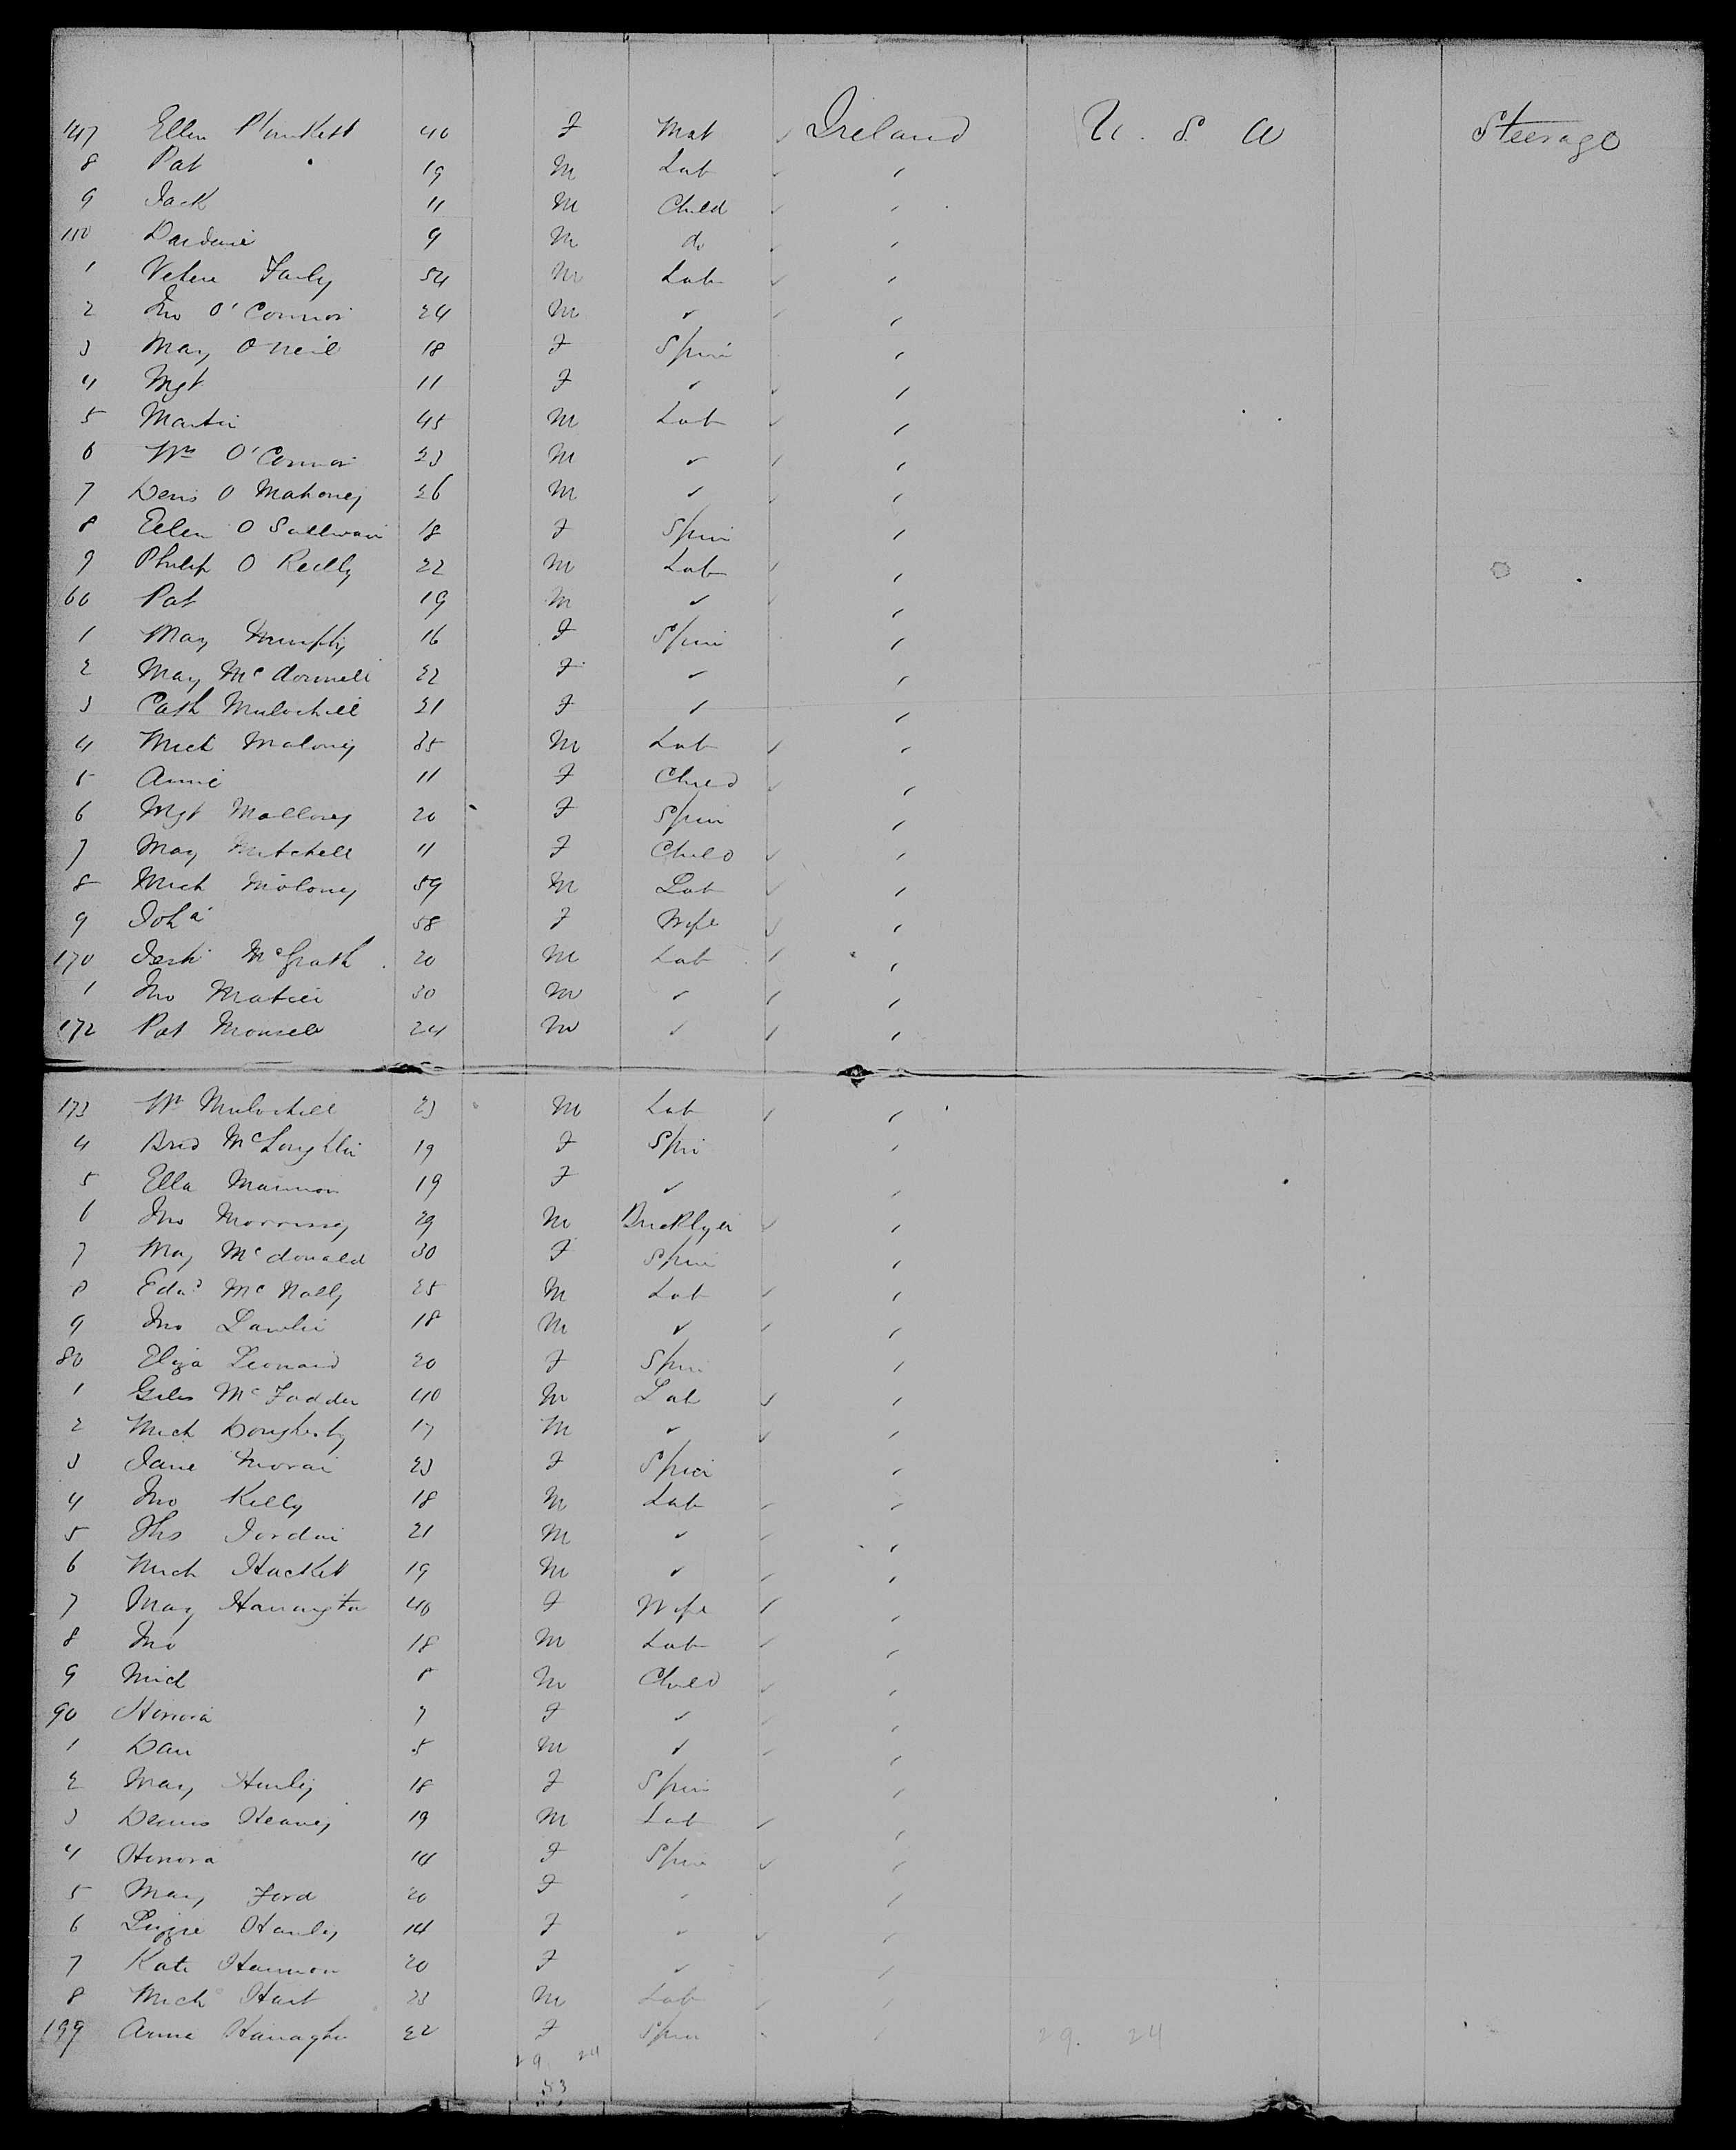 147 Ellen Plunkett 40 F Mat ✓ Ireland U. S. A Steerage
8 Pat 19 M Lab ✓ ,
9 Jack 11 M Child ✓ ,
150 9 M do ✓ ,
1 54 M Lab ✓ ,
2 Jno O'Connor 24 M ✓ ✓ ,
3 Mary O Neil 18 F Spin ,
4 Mgt 11 F ✓ ✓ ,
5 Martin 45 M Lab ✓ ,
6 Wm O'Connor 23 M ✓ ✓ ,
7 Denis O Mahoney 26 M ✓ ✓ ,
8 Ellen O Sullivan 18 F Spin ,
9 Philip O Reilly 22 M Lab ✓ ,
60 Pat 19 M ✓ ✓ ,
1 Mary Murphy 16 F Spin ,
2 Mary McDonnell 22 F ✓ ,
3 Cath Mulvihill 21 F ✓ ,
4 Mich Maloney 35 M Lab ✓ ,
5 Annie 11 F Child ✓ ,
6 Mgt Molloney 20 F Spin ,
7 Mary Mitchell 11 F Child ✓ ,
8 Mich Moloney 59 M Lab ✓ ,
9 Joha 58 F Wife ✓ ,
170 McGrath 20 M Lab ✓ ,
1 Jno 30 M ✓ ✓ ,
172 Pat Monsell 24 M ✓ ✓ ,
173 Wm Mulvihill 23 M Lab ✓ ,
4 Brid McLoughlin 19 F Spin ,
5 Ella Mannion 19 F ✓ ,
6 Jno Morrissy 29 M Bricklyer ✓ ,
7 May McDonald 30 F Spin ,
8 Edwd McNally 25 M Lab ✓ ,
9 Jno Lawlin 18 M ✓ ✓ ,
80 Eliza Leonard 20 F Spin ,
1 Giles McFadden 40 M Lab ✓ ,
2 Mich Dougherty 17 M ✓ ✓ ,
3 Jane Moran 23 F Spin ,
4 Jno Kelly 18 M Lab ✓ ,
5 Ths Jordan 21 M ✓ ✓ ,
6 Mich Hackett 19 M ✓ ✓ ,
7 Mary Harrington 40 F Wife ✓ ,
8 Jno 18 M Lab ✓ ,
9 Mich 8 M Child ✓ ,
90 Honora 7 F ✓ ✓ ,
1 Dan 5 M ✓ ✓ ,
2 Mary Hurley 18 F Spin ,
3 Dennis Heaney 19 M Lab ✓ ,
4 Honora 14 F Spin ✓ ,
5 Mary Ford 20 F ✓ ,
6 Lizzie Hanley 14 F ✓ ✓ ,
7 Kate Hannon 20 F ✓ ,
8 Mich Hart 23 M Lab ✓ ,
199 Annie Hanaghan 22 F Spin , 29. 24
29. 24
53